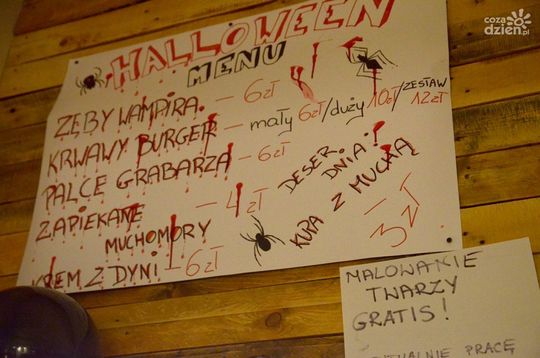 HALLOWEEN
MENU
ZĘBY WAMPIRA - 6 zł
KRWAWY BURGER - mały 6zł/duży 10zł/ZESTAW 12zł
PALCE GRABARZA - 6 zł
ZAPIEKANE MUCHOMORY - 4 zł
KREM Z DYNI - 6 zł
DESER DNIA!
KUPA Z MUCHĄ - 3 zł
MALOWANIE
TWARZY
GRATIS!
PRACĘ
cozadzień.pl